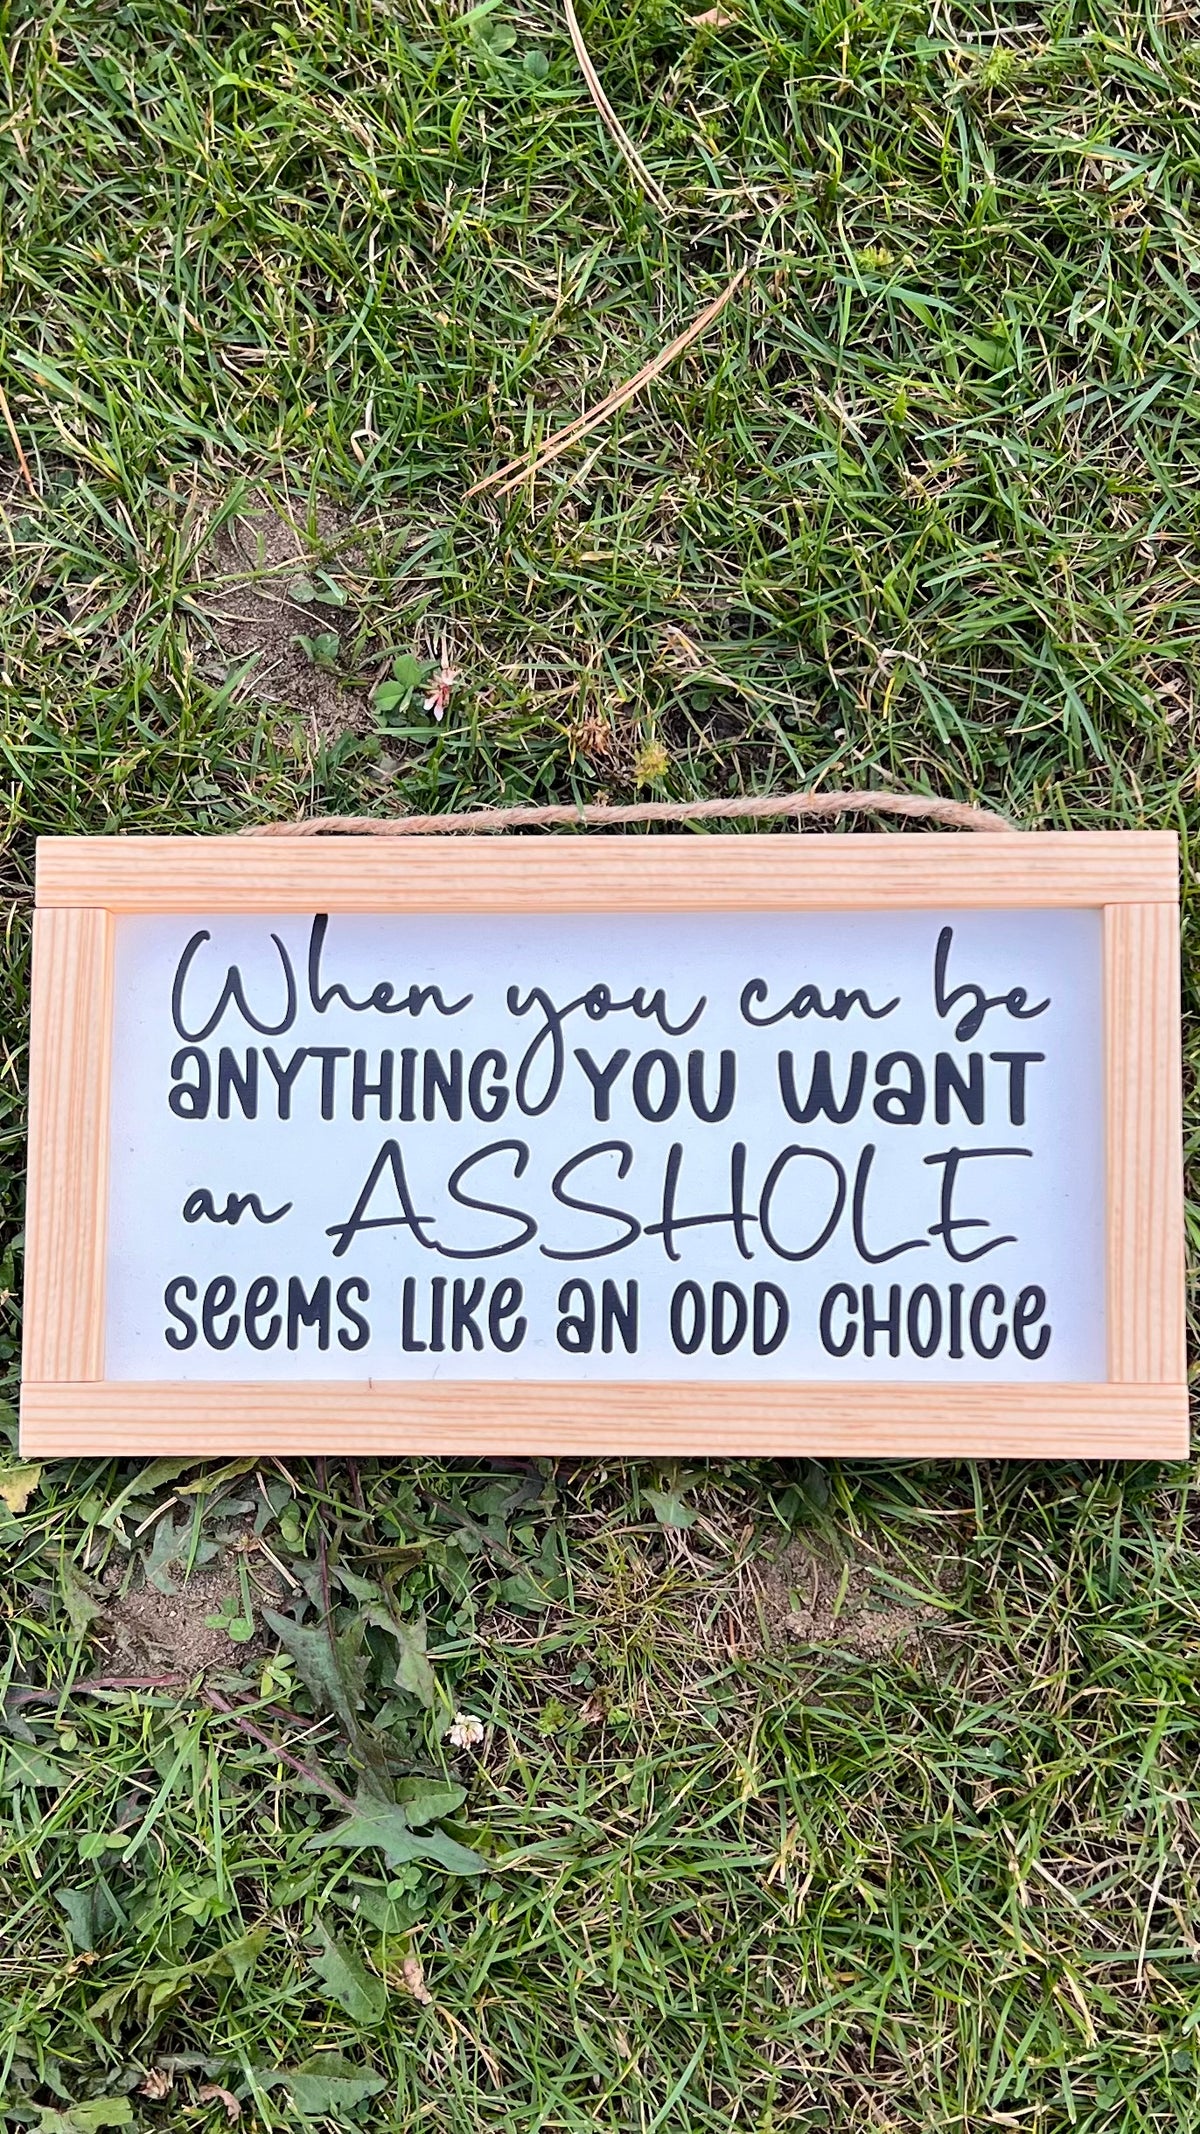 When you can be
aNYTHING YOU WaNT
an ASSHOLE
SeeMS LIKe aN ODD CHOICe